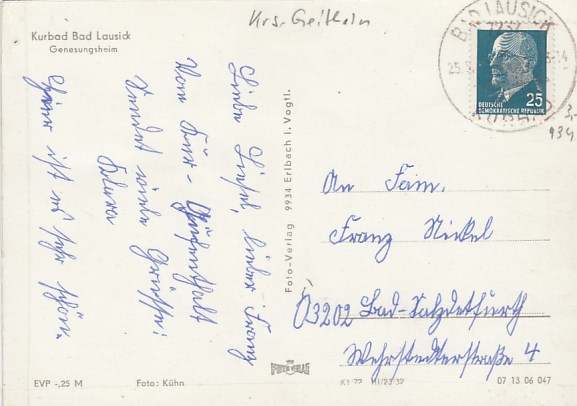 Krs. Geithain
Kurbad Bad Lausick
Genesungsheim
BAD LAUSICK
7232
DEUTSCHE
DEMOKRATISCHE REPUBLIK
25
3,-
934
Liebe Liesel, lieber Franz
Vom Kur-Aufenthalt
sendet viele Grüße!
Hier ist es sehr schön.
Foto-Verlag 9934 Erlbach i. Vogtl.
An Fam.
Franz Nickel
03202 Bad-Salzdetfurth
Wehrstedterstraße 4
EVP -,25 M
Foto: Kühn
K1/72 III/23/32
07 13 06 047